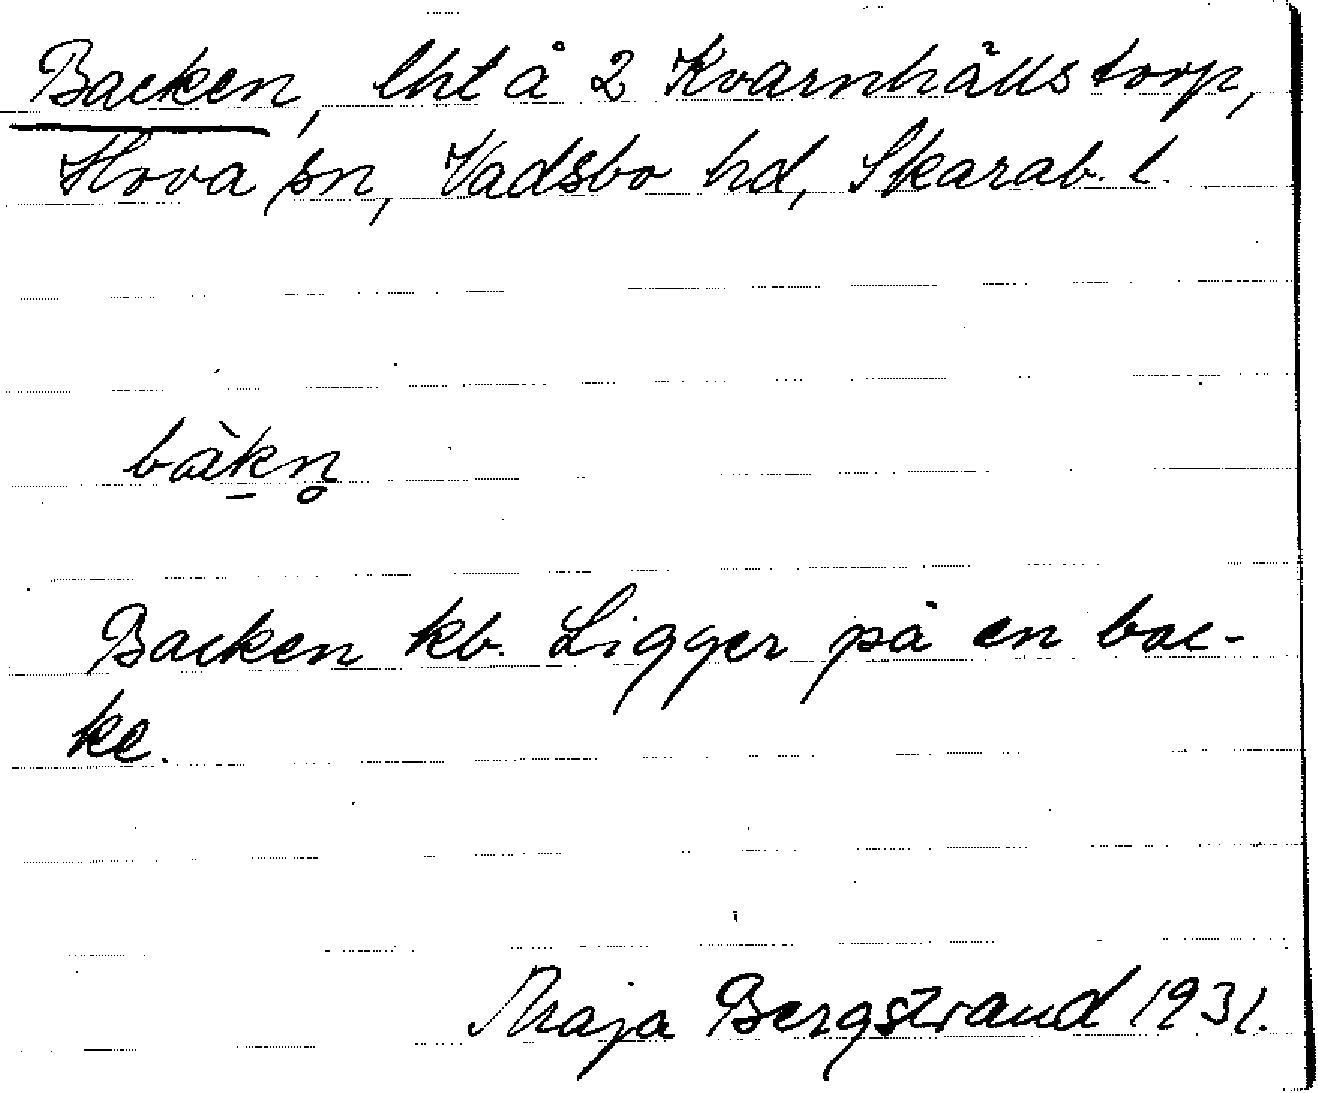 Backen, lht å 2 Kvarnhällstorp,
Hova sn, Vadsbo hd, Skarab. l.
bàk̠n̥
Backen kb. Ligger på en bac-
ke.
Maja Bergstrand 1931.